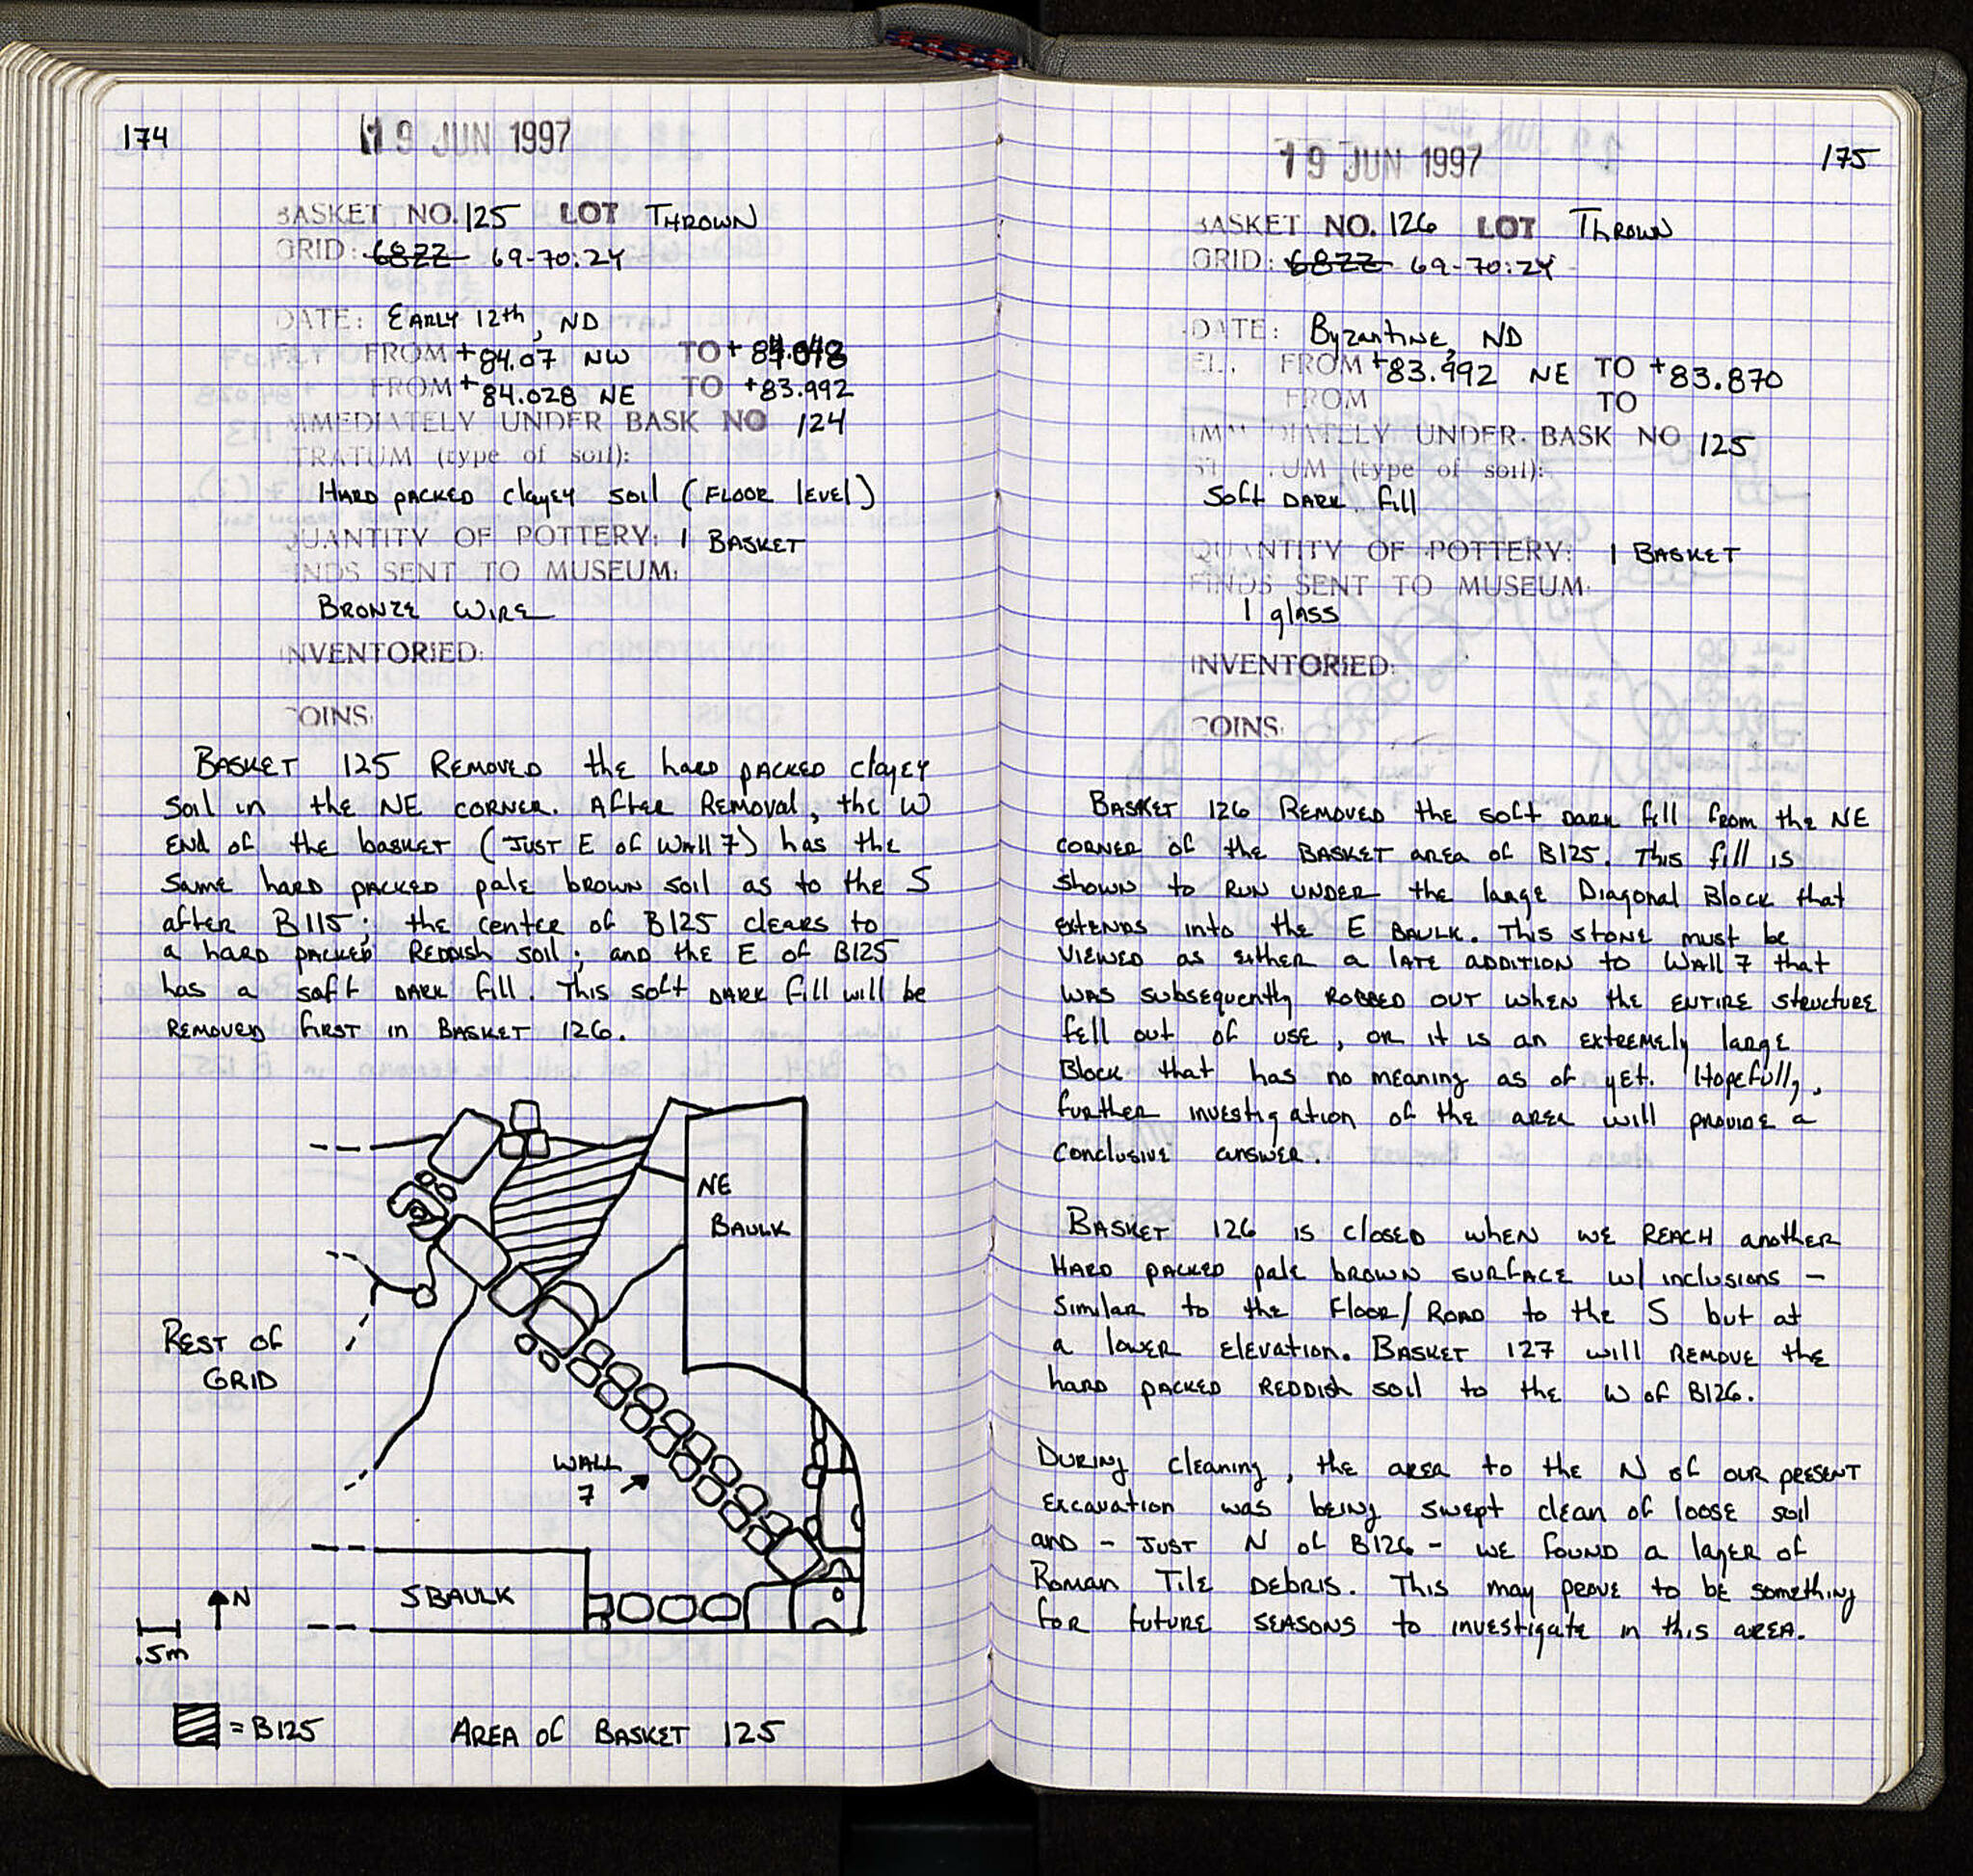 174
19 JUN 1997
BASKET NO. 125 LOT THROWN
GRID: 68ZZ 69-70:ZY
DATE: EARLY 12th, ND
FROM +84.07 NW TO +84.048
FROM +84.028 NE TO +83.992
IMMEDIATELY UNDER BASK NO 124
STRATUM (type of soil):
HARD PACKED clayEY soil (FLOOR lEVEl)
QUANTITY OF POTTERY: 1 BASKET
FINDS SENT TO MUSEUM:
BRONZE WIRE
INVENTORIED:
COINS:
BASKET 125 REMOVED the hARD PACKED clayEY
soil in the NE CORNER. AftER REMOVAl, the W
END of the baskET (JUST E of WAll 7) has the
SAME hARD PACKED pale brown soil as to the S
after B115; the center of B125 clears to
a hard PACKED REDDish soil; and the E of B125
has a soft DARK fill. This soft DARK fill will be
REMOVED first in BASKET 126.
NE
BAULK
REST of
GRID
WALL
7
S BAULK
N
.5m
= B125
AREA of BASKET 125
175
19 JUN 1997
BASKET NO. 126 LOT THROWN
GRID: 68ZZ 69-70:ZY
DATE: ByzANtiNE, ND
EL. FROM +83.992 NE TO +83.870
FROM TO
IMMEDIATELY UNDER BASK NO 125
STRATUM (type of soil):
Soft DARK fill
QUANTITY OF POTTERY: 1 BASKET
FINDS SENT TO MUSEUM:
1 glass
INVENTORIED:
COINS:
BASKET 126 REMOVED the soft DARK fill from the NE
CORNER of the BASKET area of B125. This fill is
shown to RUN UNDER the large Diagonal Block that
EXTENDS into the E BAULK. This stone must be
VIEWED as Either a late ADDITION to WALL 7 that
was subsequently ROBBED OUT when the ENTIRE structure
fell out of USE, OR it is an EXTREMELY large
Block that has no meaning as of yet. Hopefully,
further investigation of the area will PROVIDE a
conclusive answer.
BASKET 126 is closed when we REACH another
HARD PACKED pale brown SURFACE w/ inclusions -
Similar to the Floor/ROAD to the S but at
a lower ElEvation. BASKET 127 will REMOVE the
hard PACKED REDDish soil to the W of B126.
DURING cleaning, the area to the N of our PRESENT
Excavation was being swept clean of loose soil
and - JUST N of B126 - we found a layer of
Roman Tile DEBRIS. This may prove to be something
for future SEASONS to investigate in this area.